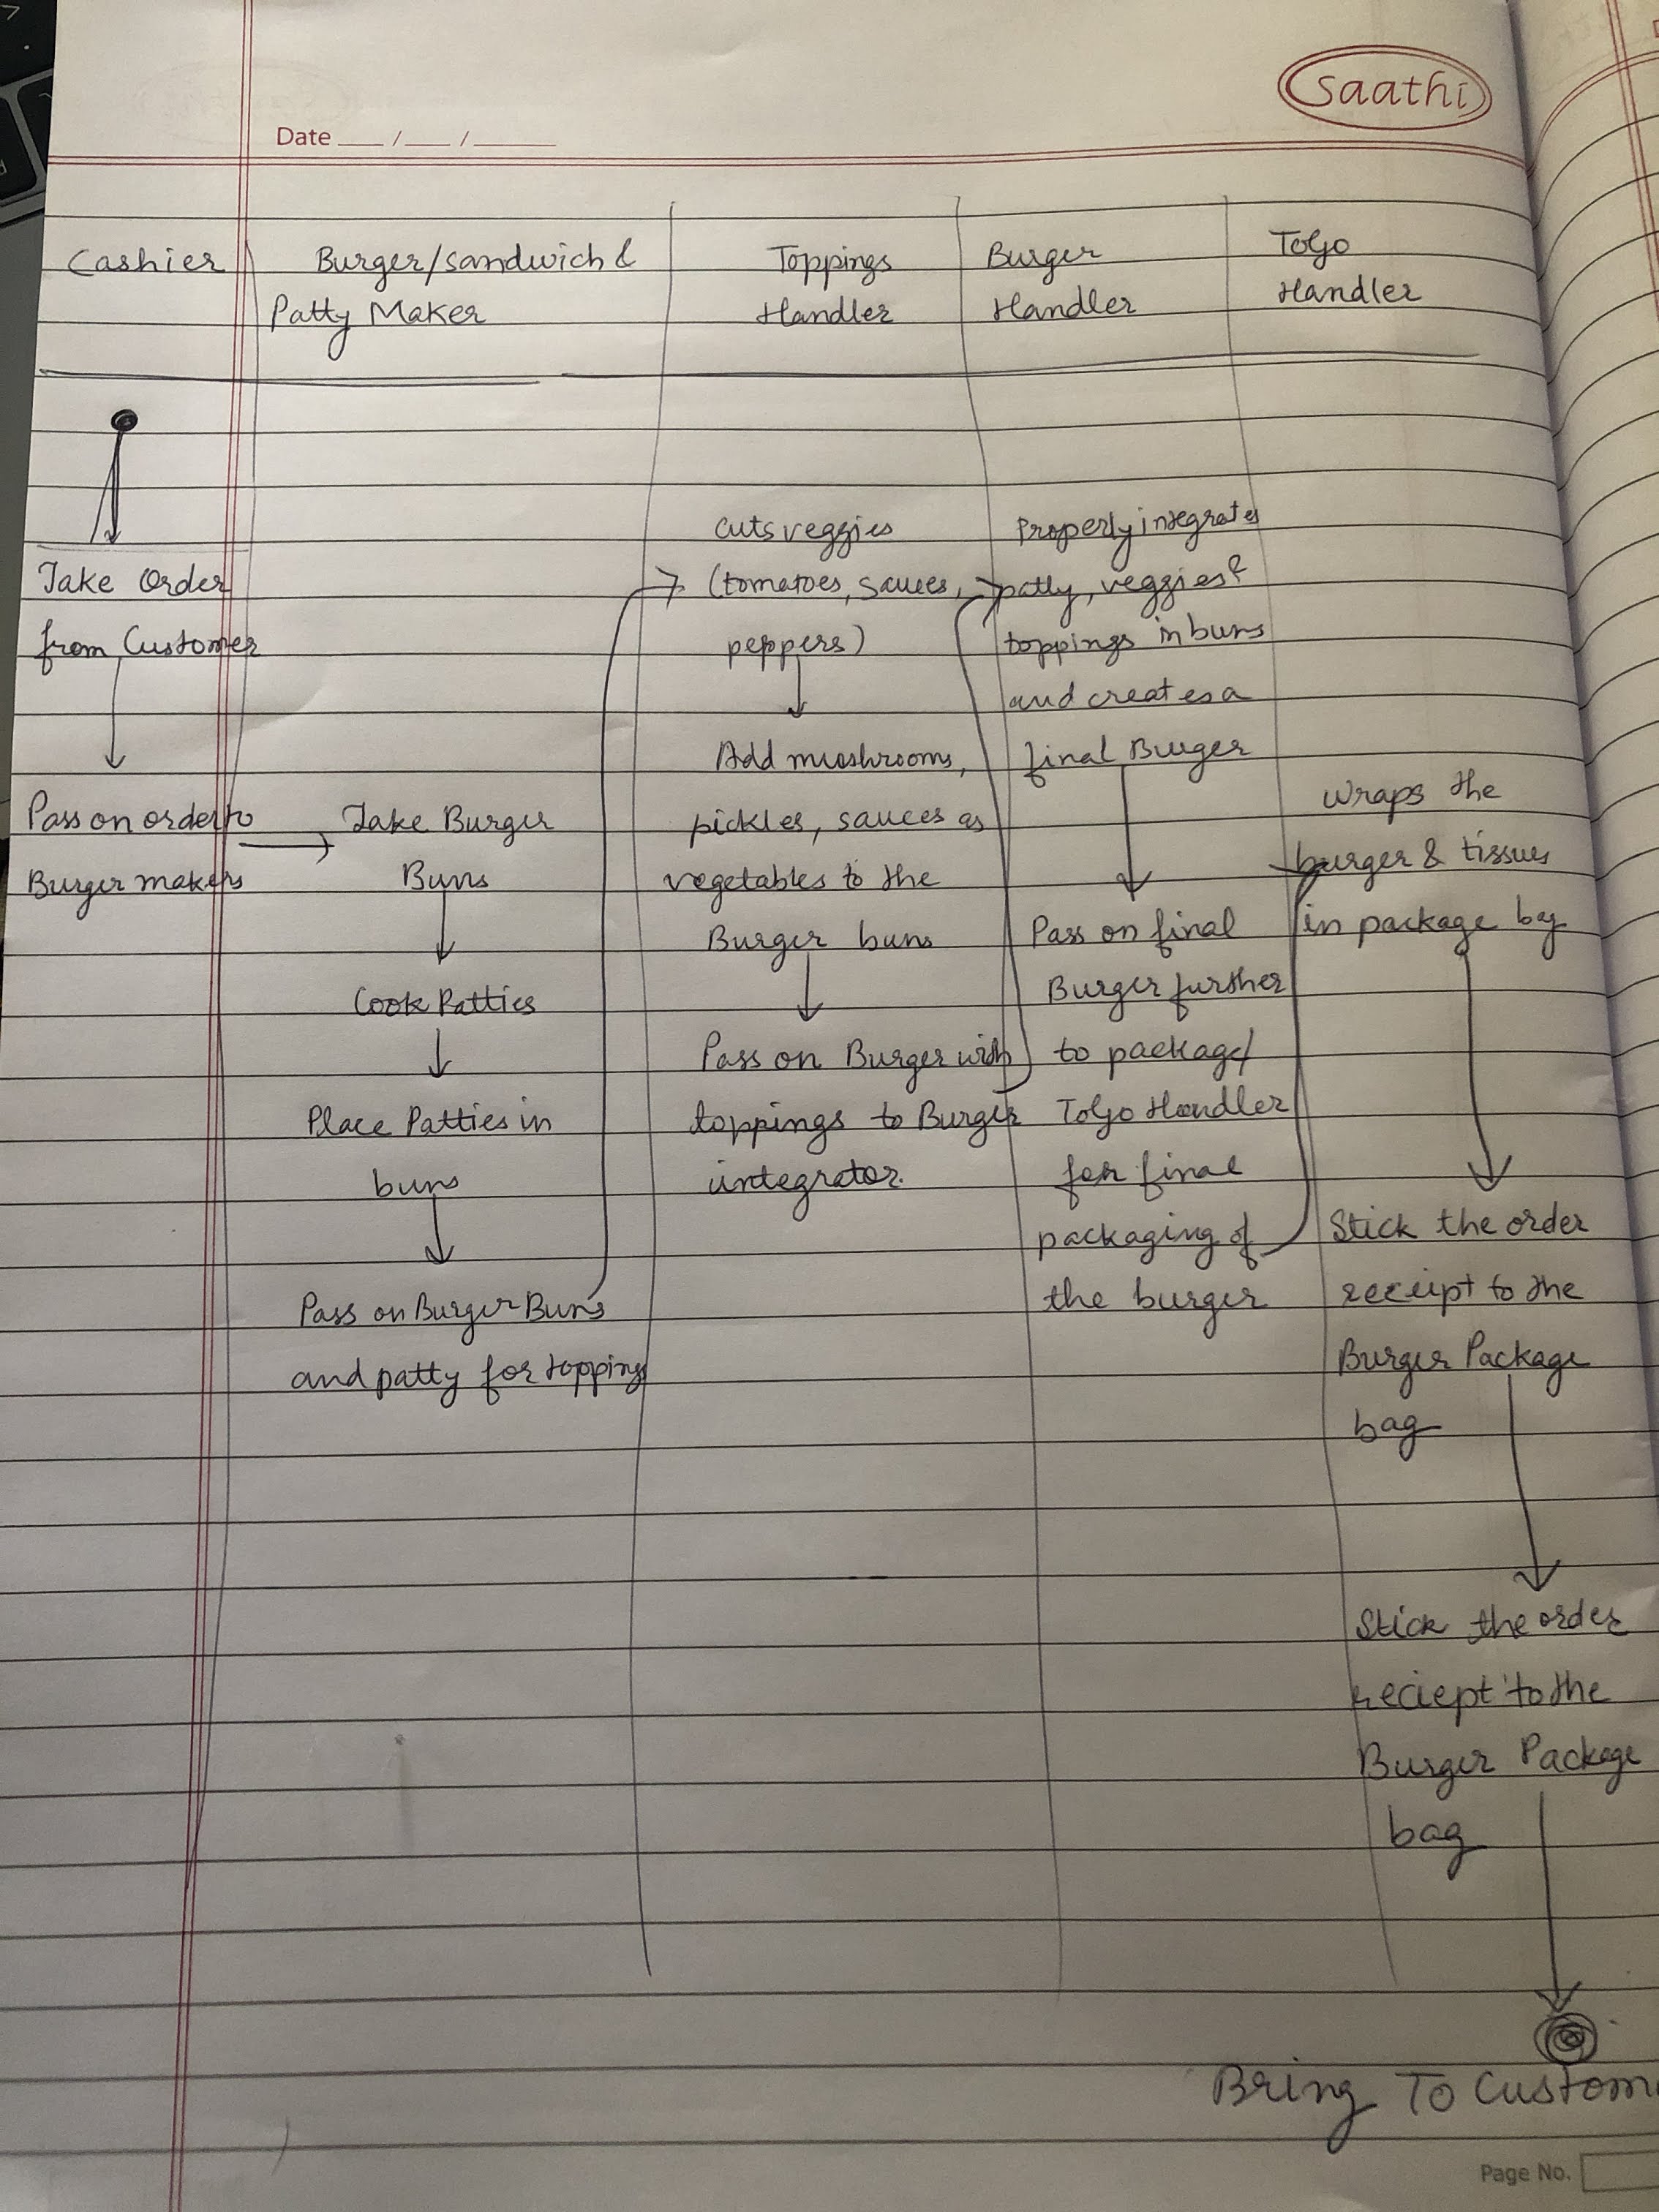 saathi
Date __/__/____
Cashier
Burger/sandwich &
Patty Maker
Toppings
Handler
Burger
Handler
ToGo
Handler
Take Order
from Customer
Pass on order to
Burger makers
Take Burger
Buns
Cook Patties
Place Patties in
buns
Pass on Burger Buns
and patty for topping
cuts veggies
(tomatoes, sauces,
peppers)
Add mushrooms,
pickles, sauces as
vegetables to the
Burger buns
Pass on Burger with
toppings to Burger
integrator.
Properly integrates
patty, veggies &
toppings in buns
and creates a
final Burger
Pass on final
Burger further
to package/
ToGo Handler
for final
packaging of
the burger
Wraps the
burger & tissues
in package bag
Stick the order
receipt to the
Burger Package
bag
Stick the order
reciept to the
Burger Package
bag
Bring To Custom
Page No.